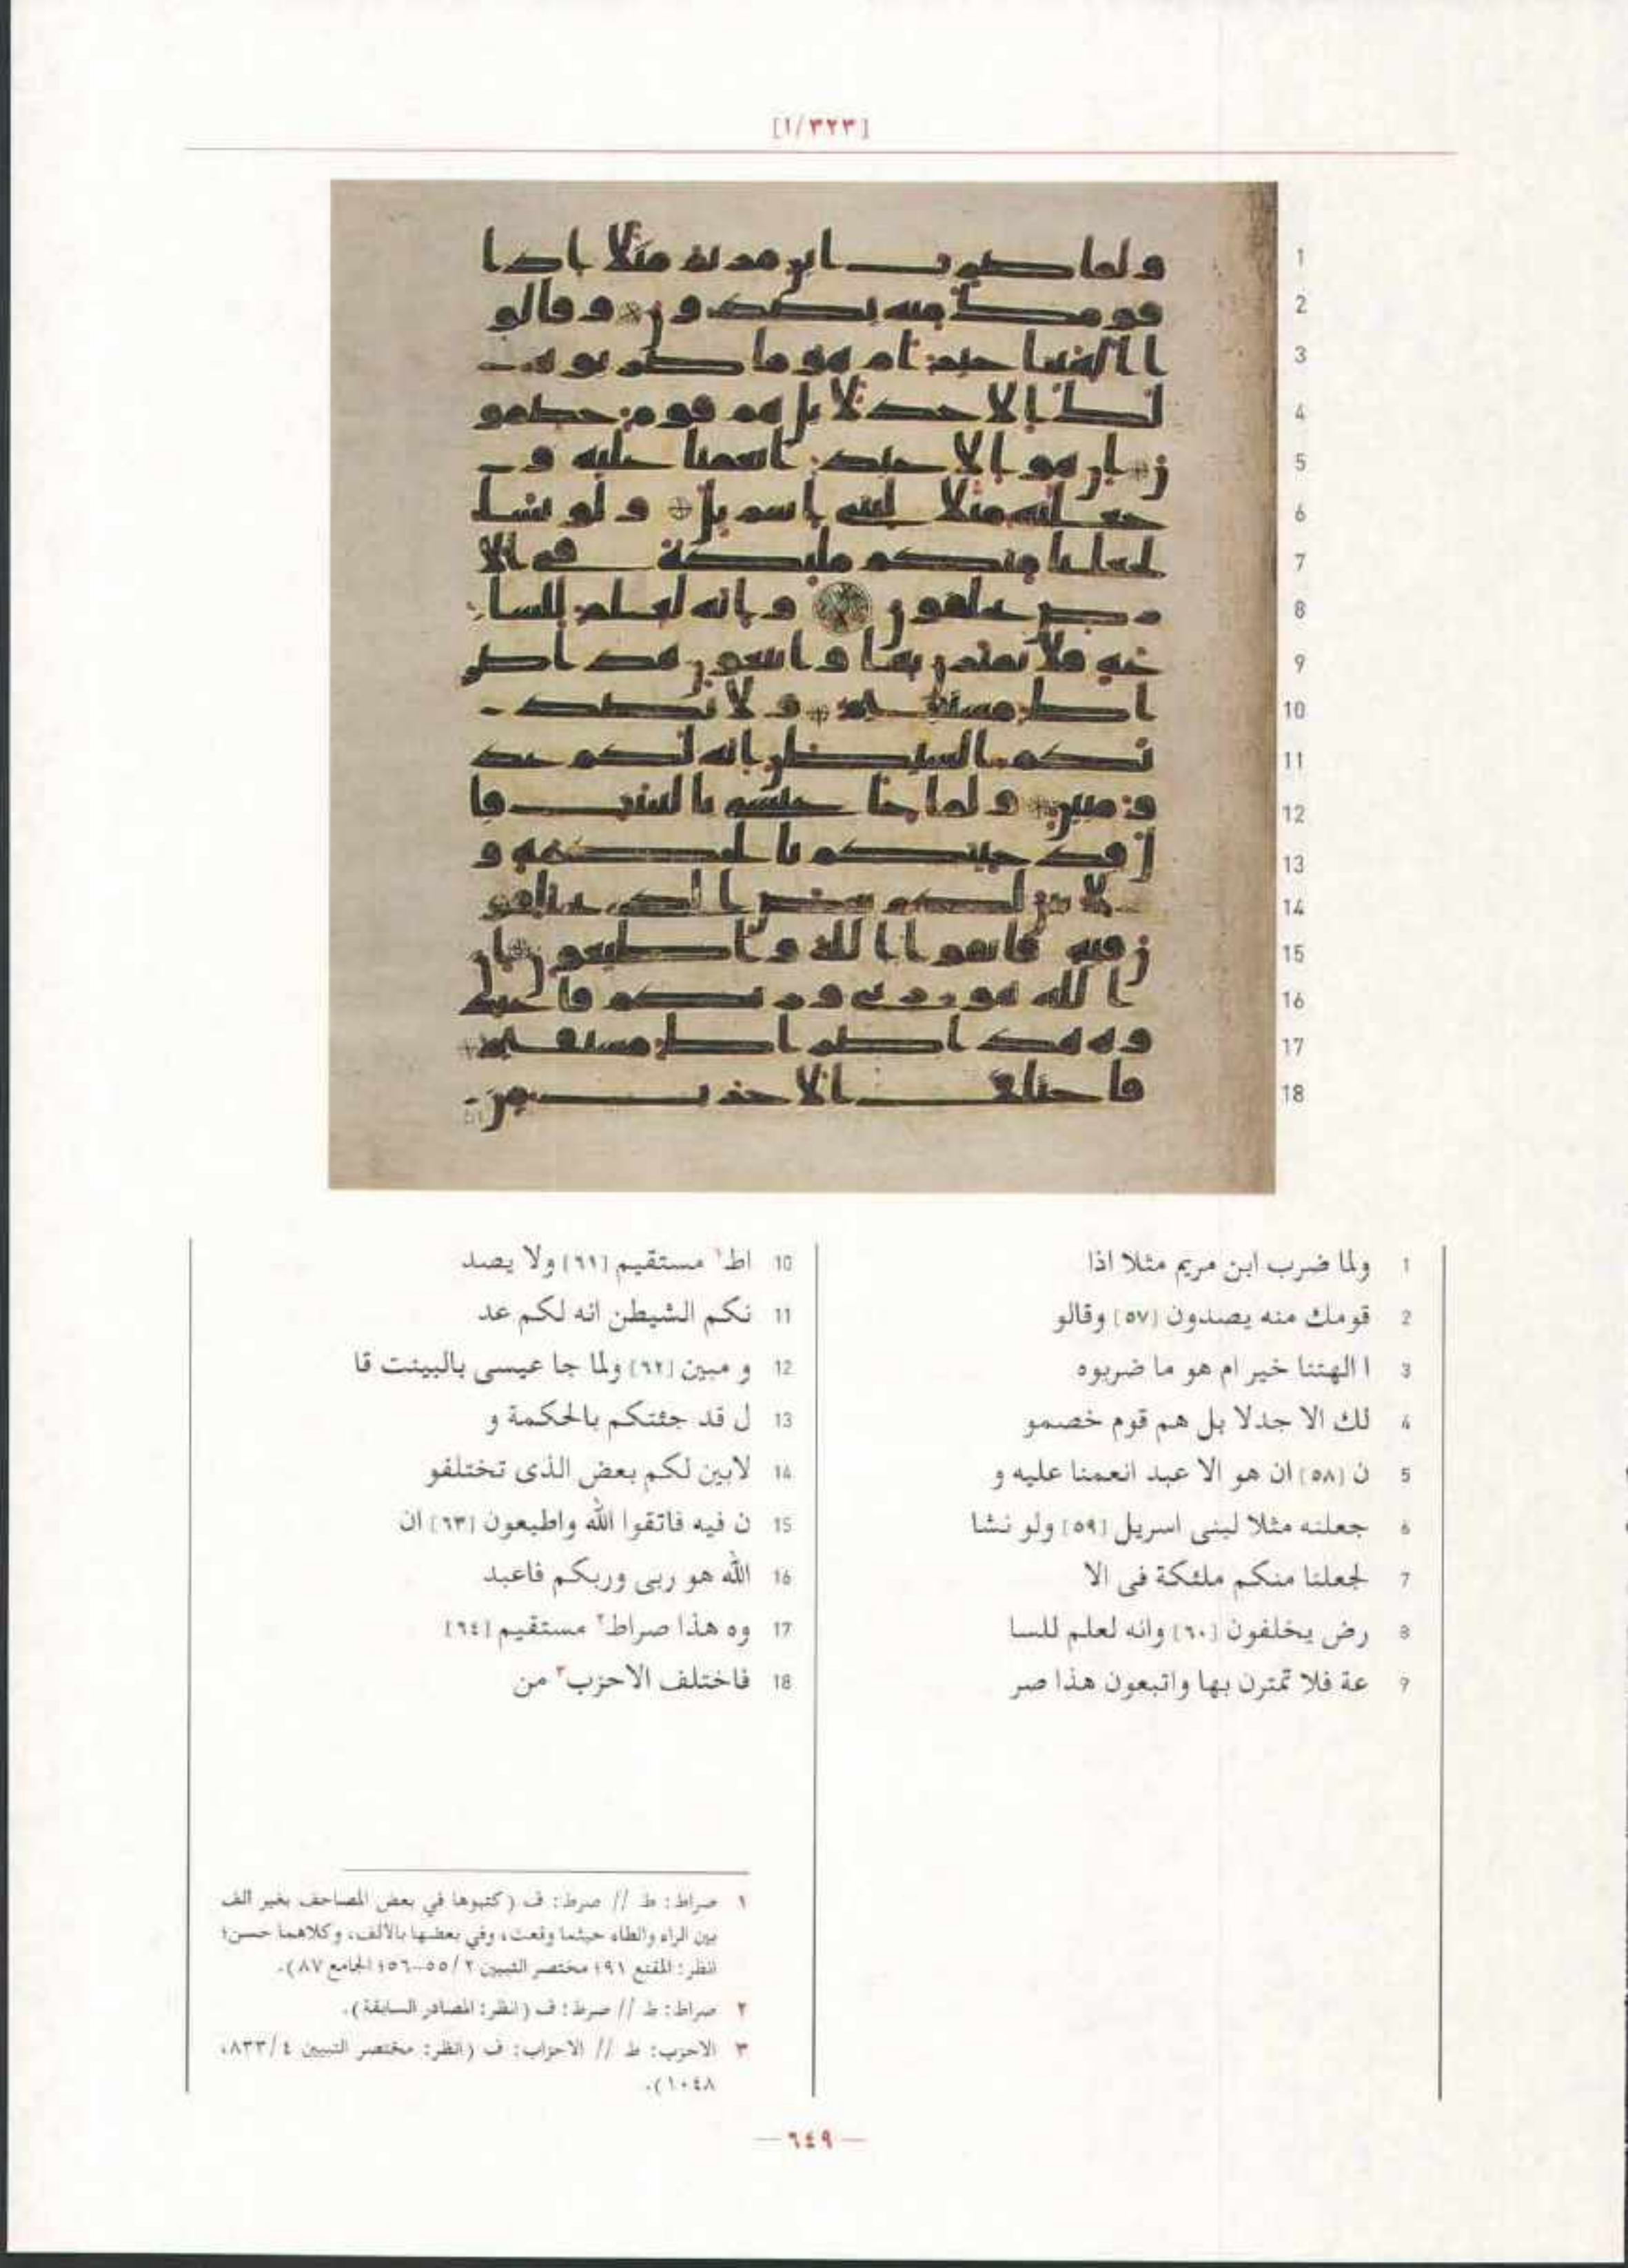 [١/٣٢٣]
1 ولما ضرب ابن مريم مثلا اذا
2 قومك منه يصدون [٥٧] وقالو
3 ا الهتنا خير ام هو ما ضربوه
4 لك الا جدلا بل هم قوم خصمو
5 ن [٥٨] ان هو الا عبد انعمنا عليه و
6 جعلنه مثلا لبنى اسريل [٥٩] ولو نشا
7 لجعلنا منكم ملئكة فى الا
8 رض يخلفون [٦٠] وانه لعلم للسا
9 عة فلا تمترن بها واتبعون هذا صر
10 اط١ مستقيم [٦١] ولا يصد
11 نكم الشيطن انه لكم عد
12 و مبين [٦٢] ولما جا عيسى بالبينت قا
13 ل قد جئتكم بالحكمة و
14 لابين لكم بعض الذى تختلفو
15 ن فيه فاتقوا الله واطيعون [٦٣] ان
16 الله هو ربى وربكم فاعبد
17 وه هذا صراط٢ مستقيم [٦٤]
18 فاختلف الاحزب٣ من
١ صراط: ط // صرط: ف (كتبوها في بعض المصاحف بغير الف
بين الراء والطاء حيثما وقعت، وفي بعضها بالألف، وكلاهما حسن؛
انظر: المقنع ٩١؛ مختصر التبيين ٢/ ٥٥-٥٦؛ الجامع ٨٧).
٢ صراط: ط // صرط: ف (انظر: المصادر السابقة).
٣ الاحزب: ط // الاحزاب: ف (انظر: مختصر التبيين ٤/ ٨٣٣،
١٠٤٨).
— ٦٤٩ —